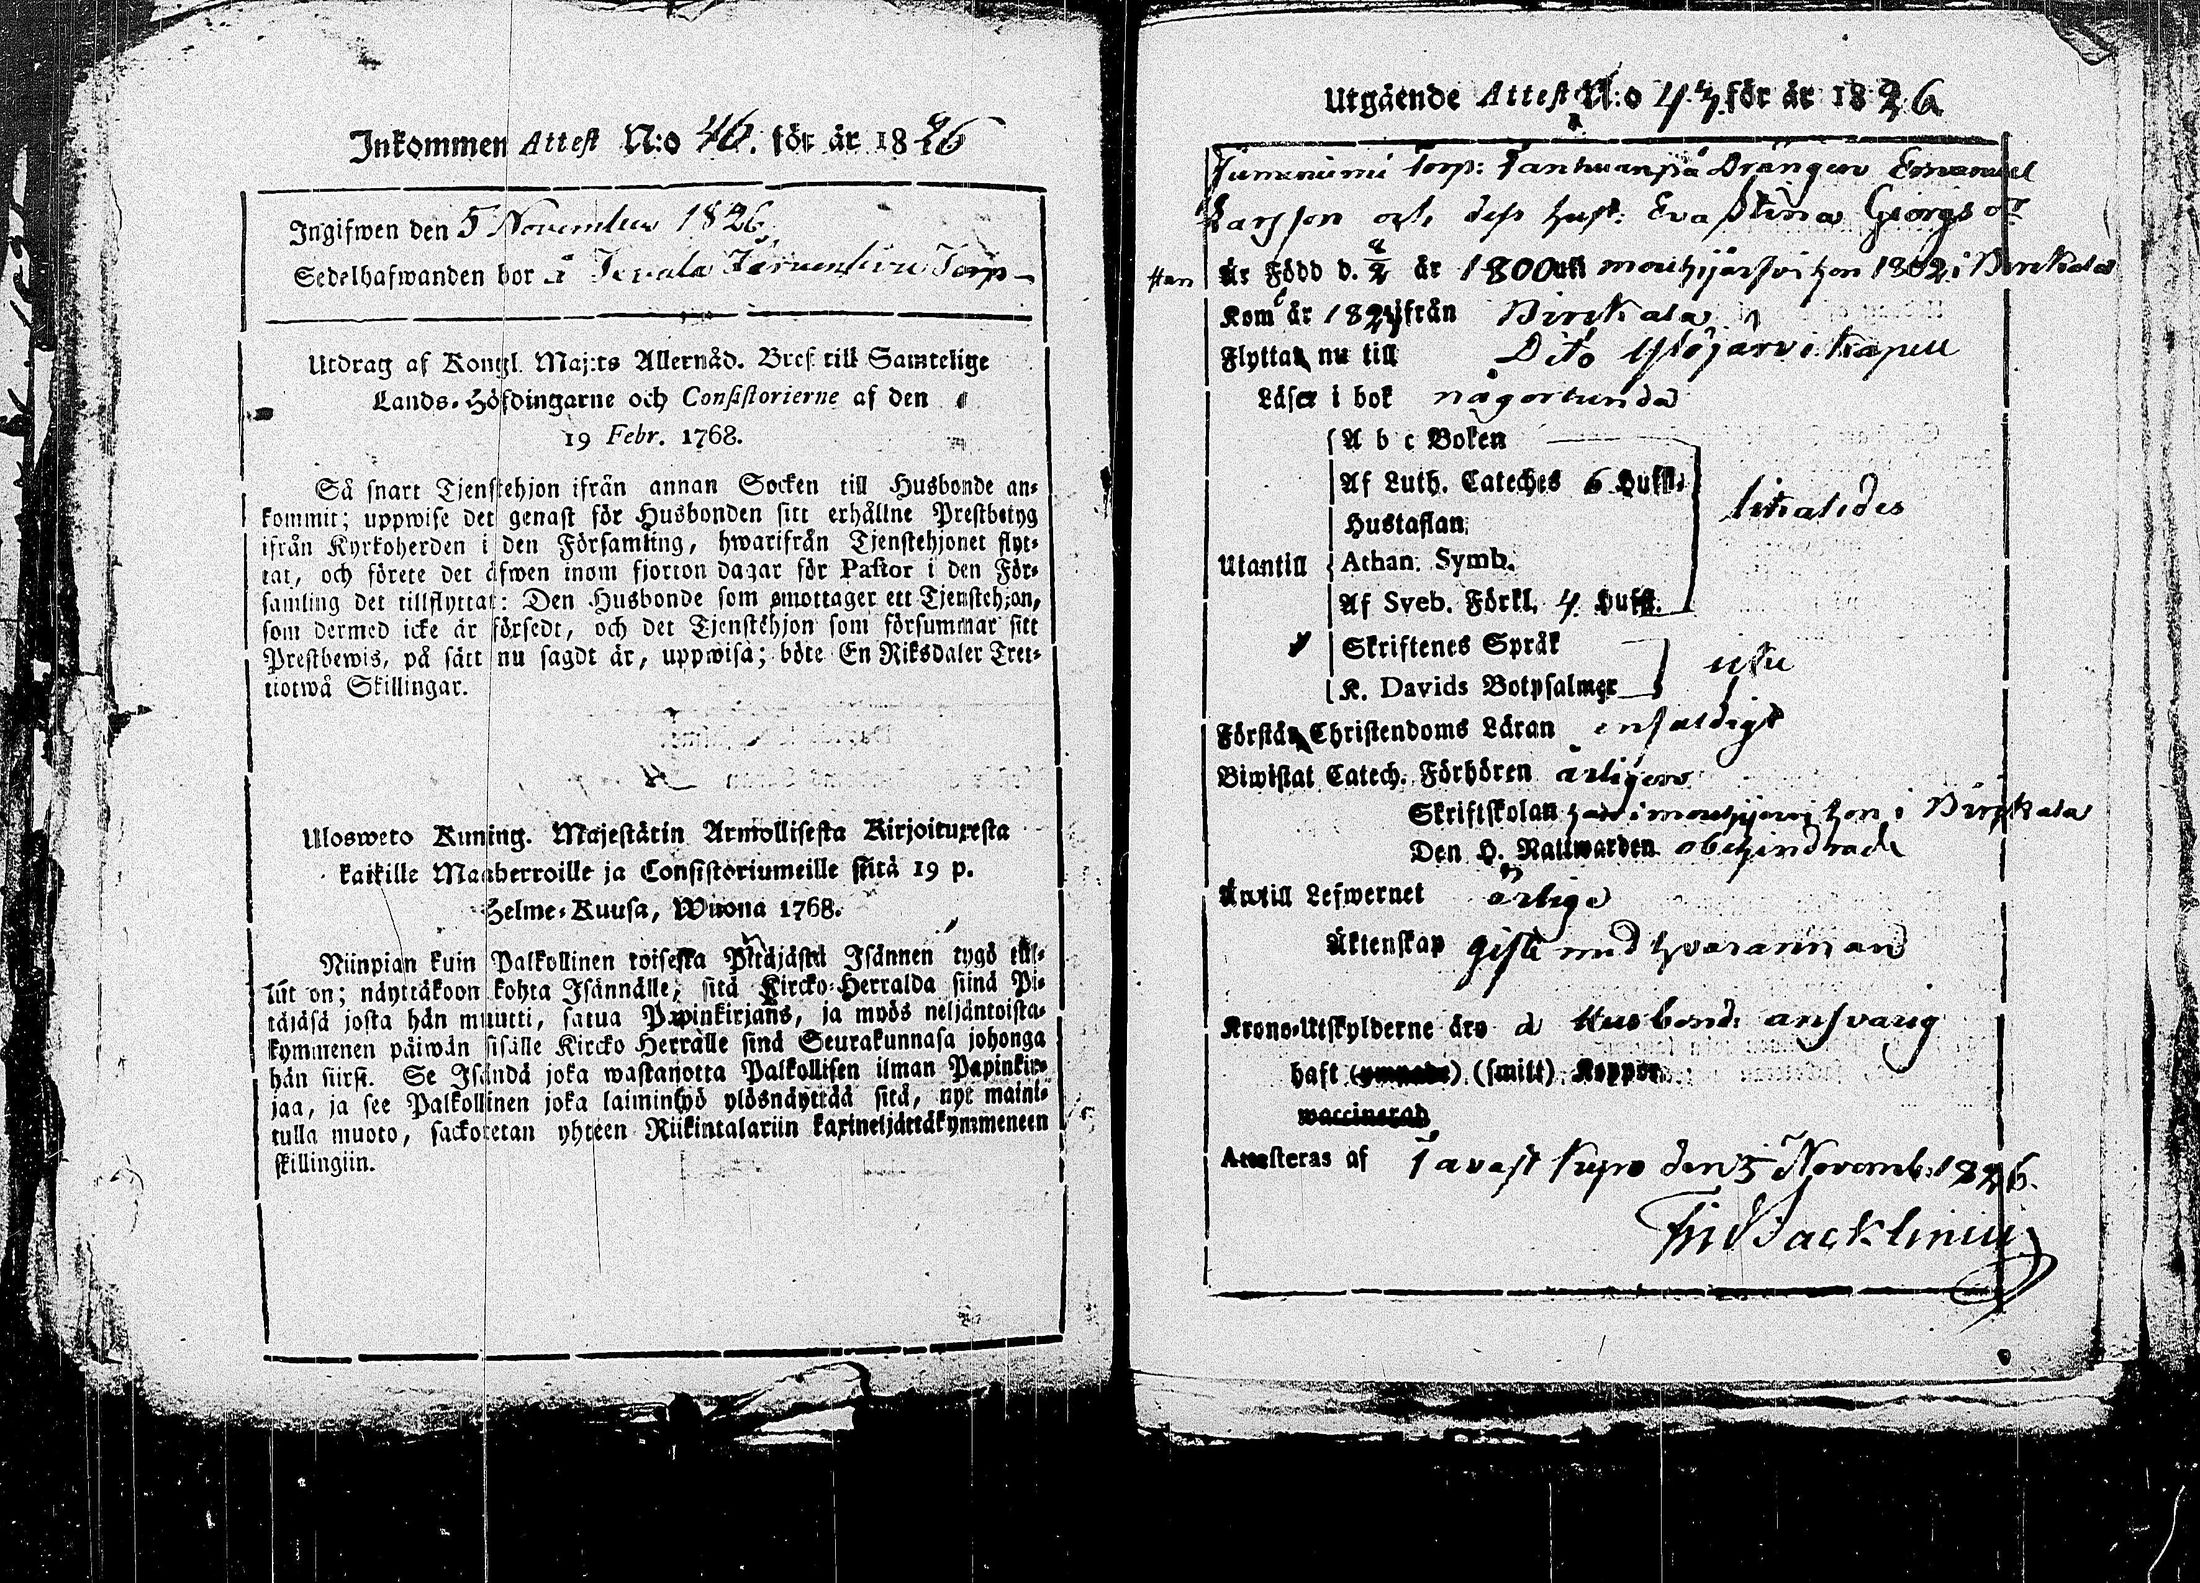 Inkommen Attest N:o 46. för år 1826
Ingifwen den 5 November 1826
Sedelhafwanden bor å Torp
Utdrag af Kongl. Maj:ts Allernåd. Bref till Samtelige
Lands-Höfdingarne och Consistorierne af den
19 Febr. 1768.
Så snart Tjenstehjon ifrån annan Socken till Husbonde an-
kommit; uppwise det genast för Husbonden sitt erhållne Prestbetyg
ifrån Kyrkoherden i den Församling, hwarifrån Tjenstehjonet flyt-
tat, och förete det äfwen inom fjorton dagar för Pastor i den För-
samling det tillflyttat: Den Husbonde som emottager ett Tjenstehjon,
som dermed icke är försedt, och det Tjenstehjon som försummar sitt
Prestbewis, på sätt nu sagdt är, uppwisa; böte En Riksdaler Tret-
tiotwå Skillingar.
Ulosweto Kuning. Majestätin Armollisesta Kirjoituxesta
kaikille Maaherroille ja Consistoriumeille siitä 19 p.
Helme-Kuusa, Wuona 1768.
Niinpian kuin Palkollinen toisesta Pitäjästä Isännen tygö tul-
lut on; näyttäkoon kohta Isännälle, sitä Kircko-Herralda siinä Pi-
täjäsä josta hän muutti, saatua Papinkirjans, ja myös neljäntoista-
kymmenen päiwän sisälle Kircko Herralle sinä Seurakunnasa johonga
hän siirsi. Se Isändä joka wastanotta Palkollisen ilman Papinkir-
jaa, ja see Palkollinen joka laiminlyö ylösnäyttää sitä, nyt maini-
tulla muoto, sackotetan yhteen Riikintalariin kaxineljättäkymmeneen
skillingiin.
Utgående Attest N:o 47. för år 1826
Torp: Drängen Emanuel
Larsson och dess hust: Eva Stina Georgsdr
Han Är Född d. 8/2 år 1800 uti mouhijärfvi hon 1802 i Birkala
Kom år 1824 ifrån Birkala
Flyttar nu till Dito Ylöjärvi Kapell
Läser i bok någorlunda
A b c Boken
Af Luth. Cateches 6 Hufst.
Hustaflan
Utantill Athan. Symb.
Af Sveb. Förkl. 4. Hufst.
Skriftenes Språk
K. Davids Botpsalmer
Förstår Christendoms Läran enfaldigt
Biwistat Catech. Förhören årligen
Skriftskolan han i mouhijärvi hon i Birkala
Den H. Nattwarden obehindrade
Äro till Lefwernet ärliga
Äktenskap gifte med hvarannan
Krono-Utskylderne äro å Husbonde ansvarig
haft (ympade) (smitt) Koppor
waccinerad
Attesteras af Tavastkyro den 5 Novemb. 1826.
Backlinius